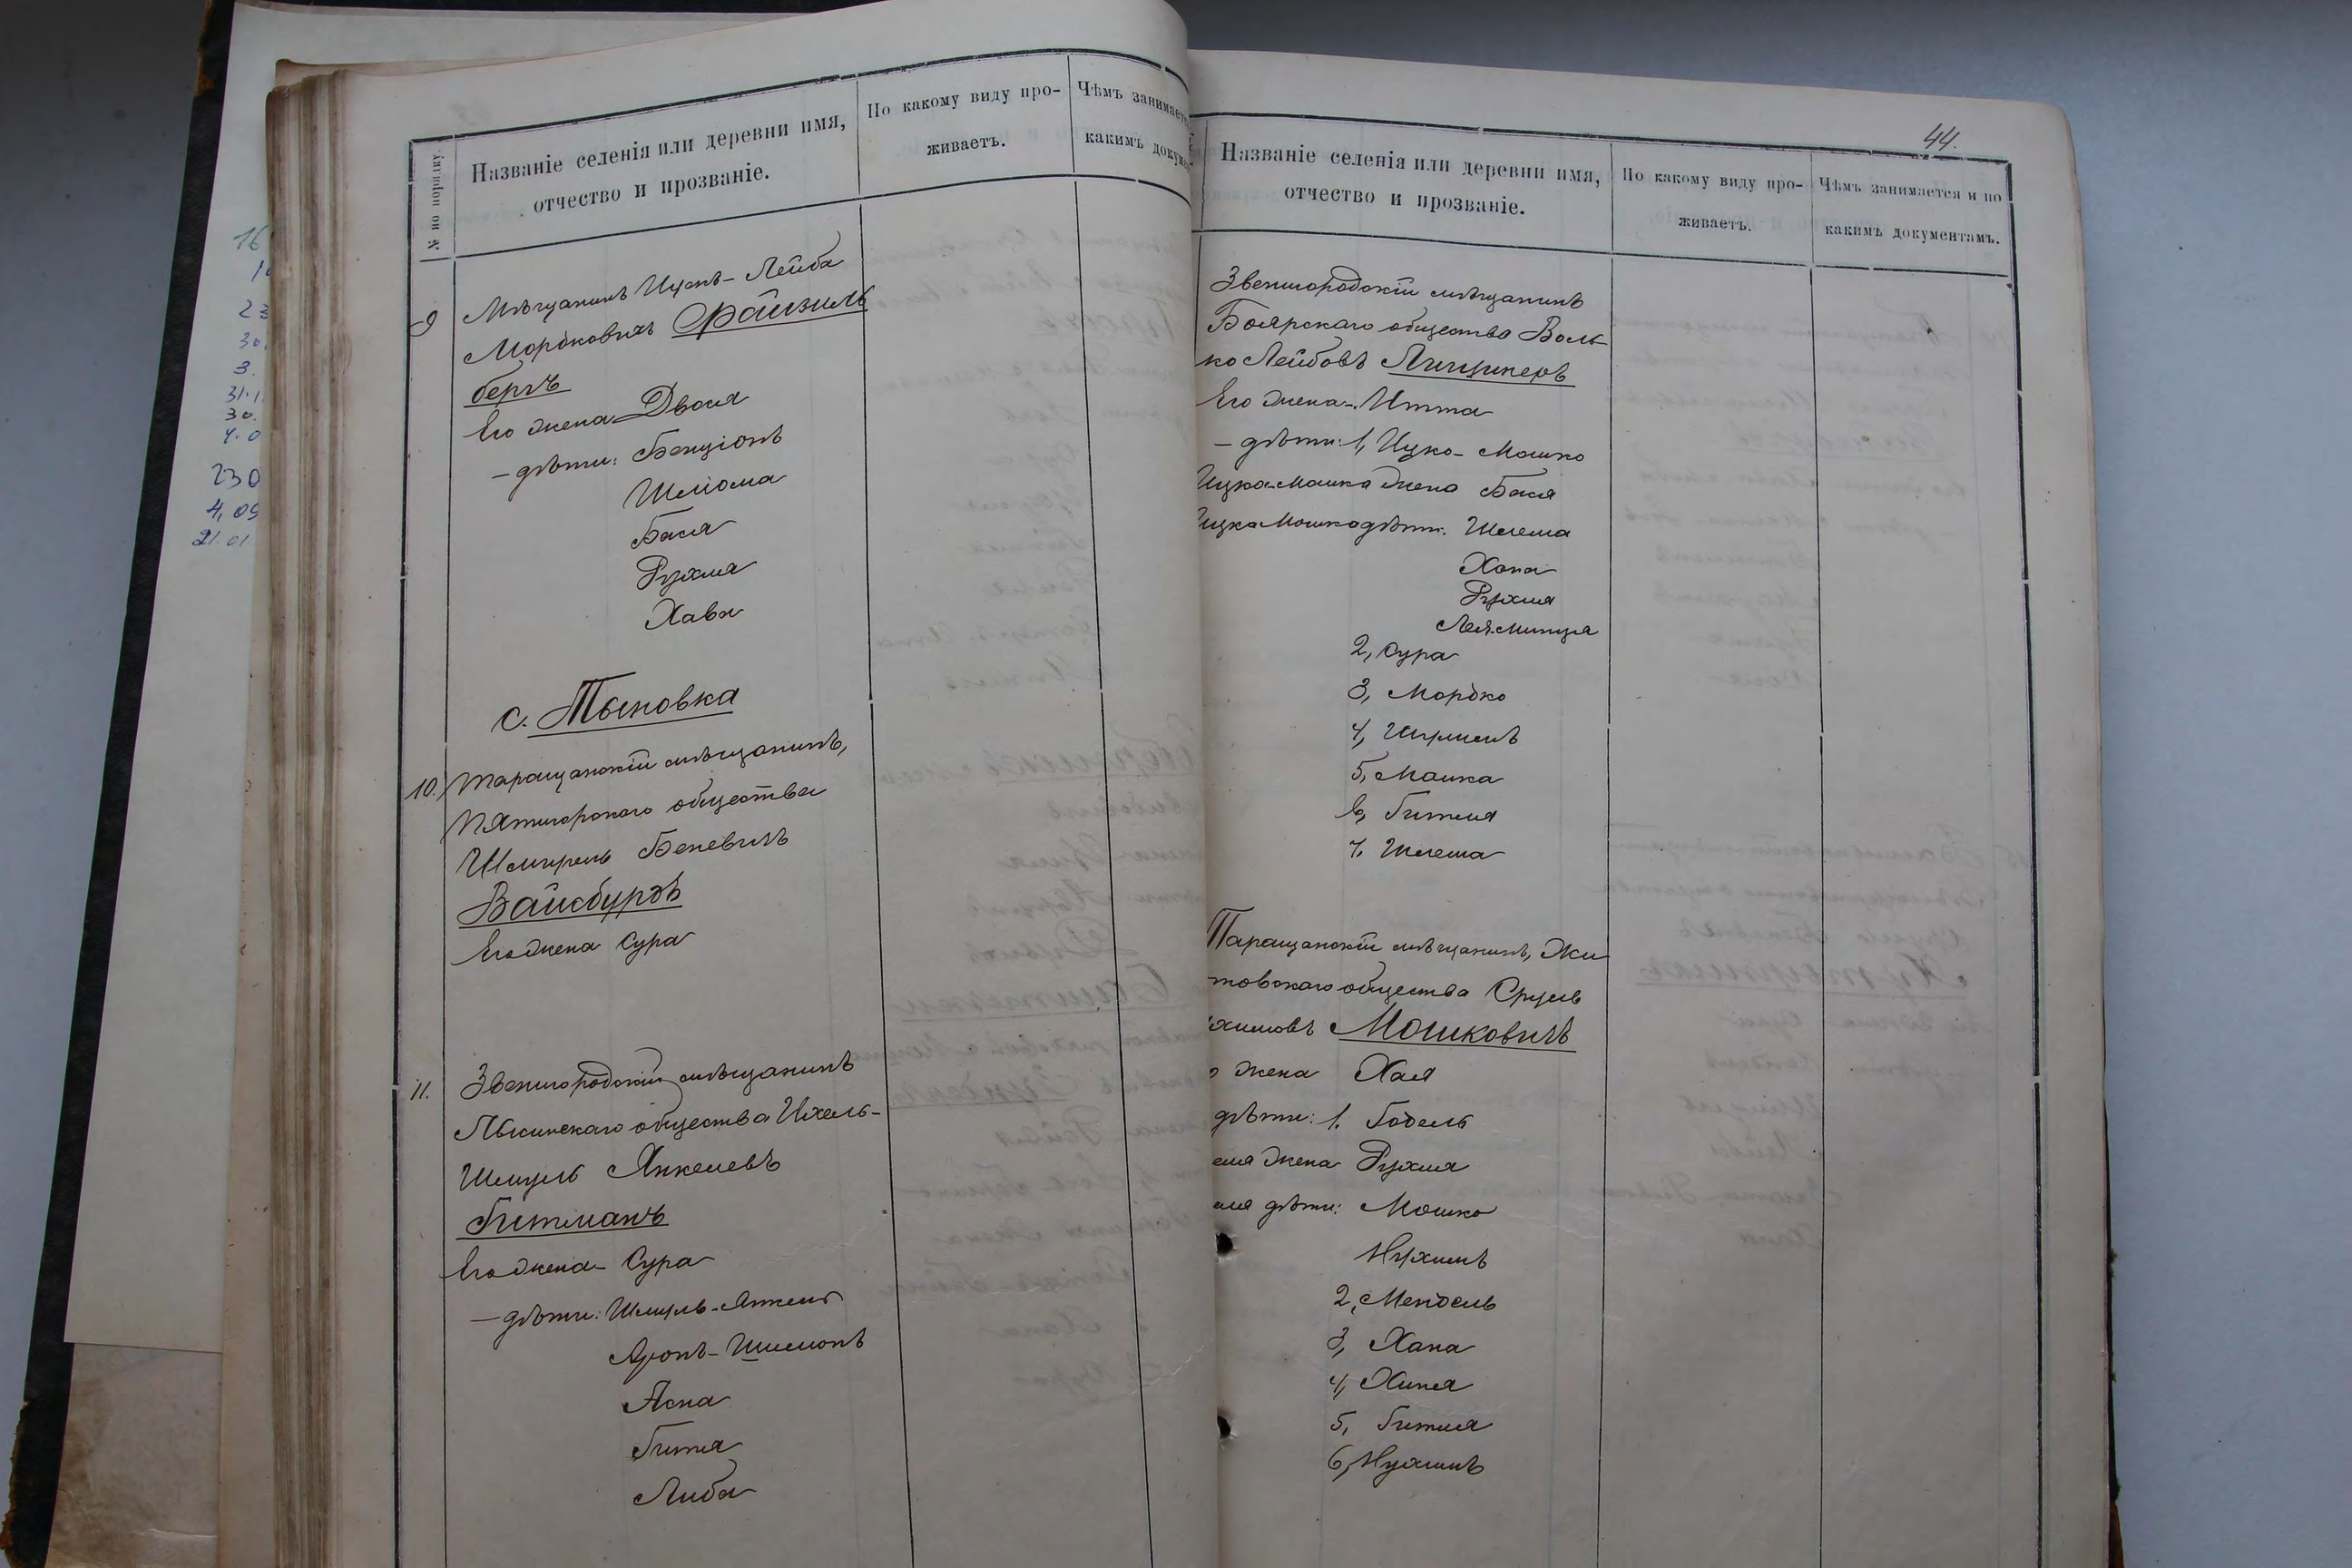 16
23
30.
3.
31.1
30.
4.0
230
4,09
21.01
№ по порядку.
Названіе селенія или деревни имя,
отчество и прозваніе.
По какому виду про-
живаетъ.
Чѣмъ занимает
какимъ докум
9
Мѣщанинъ Ицкъ-Лейба
Мордковичъ Файзиль
бергъ
Его жена Двося
- дѣти: Бенціонъ
Шліома
Бася
Рухля
Хава
с. Тыновка
10.
Таращанскій мѣщанинъ,
Пятигорскаго общества
Шмуель Беневичъ
Вайсбурдъ
Его жена Сура
11.
Звенигородскій мѣщанинъ
Лысинскаго общества Ихель-
Шмуль Янкелевъ
Гитманъ
Его жена - Сура
- дѣти: Шмуль-Янкель
Аронъ-Шимонъ
Асна
Гитля
Либа
44.
Названіе селенія или деревни имя,
отчество и прозваніе.
По какому виду про-
живаетъ.
Чѣмъ занимается и по
какимъ документамъ.
Звенигородскій мѣщанинъ
Боярскаго общества Воль-
ко Лейбовъ
Его жена - Итта
- дѣти: 1, Ицко-Мошко
Ицка-Мошка жена Бася
Ицка Мошка дѣти: Шлема
Хана
Рухля
Лея-Минця
2, Сура
3, Мордко
4,
5, Малка
6, Гитля
7. Шлема
Таращанскій мѣщанинъ, Жи
товскаго общества Сруль
химовъ Мошковичъ
о жена Хая
дѣти: 1. Годель
еля жена Рухля
еля дѣти: Мошко
Нухимъ
2, Мендель
3, Хана
4, Хиня
5, Гитля
6, Нухимъ